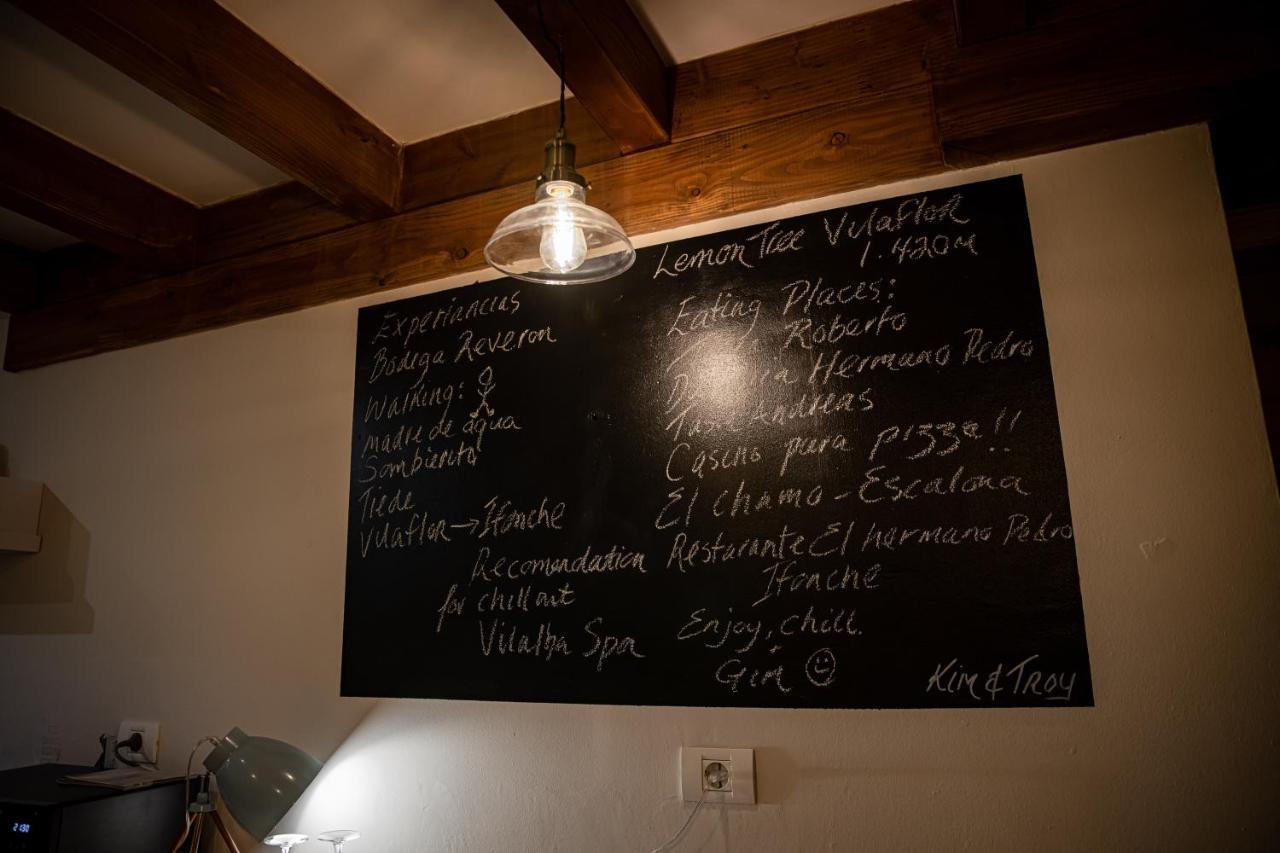 Experiancias
Bodega Reveron
Walking:
madre de agua
Sombierito
Tiede
Vilaflor → Ifonche
Recomendation
for chill out
Vilalba Spa
Lemon Tree Vilaflor
1.420m
Eating Places:
Roberto
Hermano Pedro
Tasca Andreas
Casino pura pizza!!
El Chamo - Escalona
Restarante El hermano Pedro
Ifonche
Enjoy, chill.
Gin
Kim & Troy
21:30